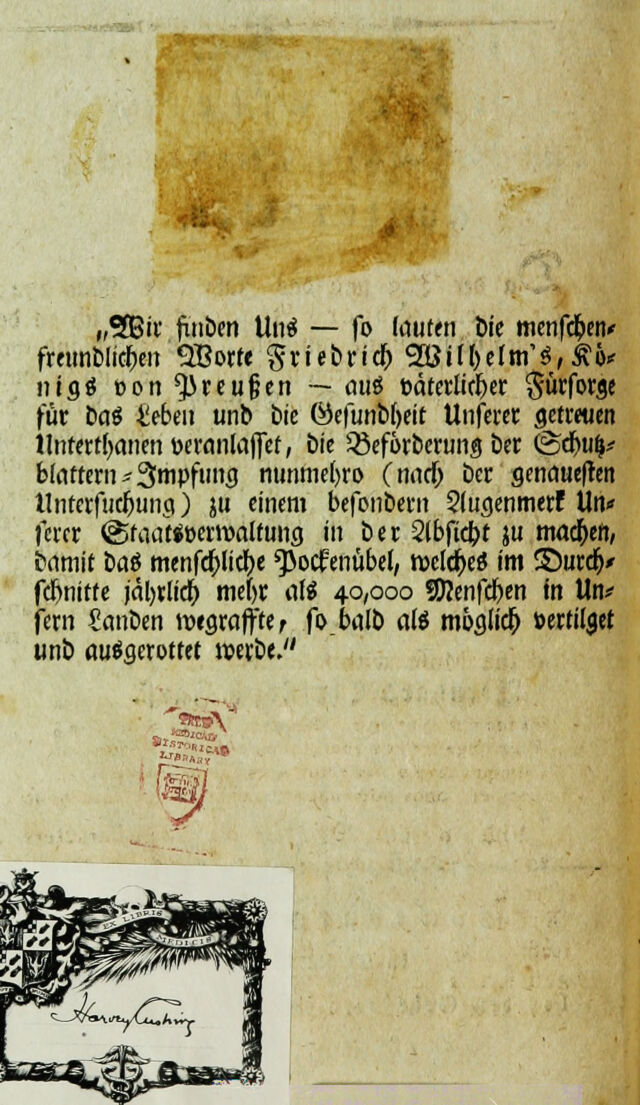 „Wir finden Uns — so lauten die menschen⸗
freundlichen Worte Friedrich Wilhelm's, Kö⸗
nigs von Preußen — aus väterlicher Fürsorge
für das Leben und die Gesundheit Unserer getreuen
Unterthanen veranlasset, die Beförderung der Schutz⸗
blattern⸗Impfung nunmehro (nach der genauesten
Untersuchung) zu einem besondern Augenmerk Un⸗
serer Staatsverwaltung in der Absicht zu machen,
damit das menschliche Pockenübel, welches im Durch⸗
schnitte jährlich mehr als 40,000 Menschen in Un⸗
sern Landen wegraffte, so bald als möglich vertilget
und ausgerottet werde."
MEDICAL
HISTORICAL
LIBRARY
EX LIBRIS
MEDICIS
Harvey Cushing